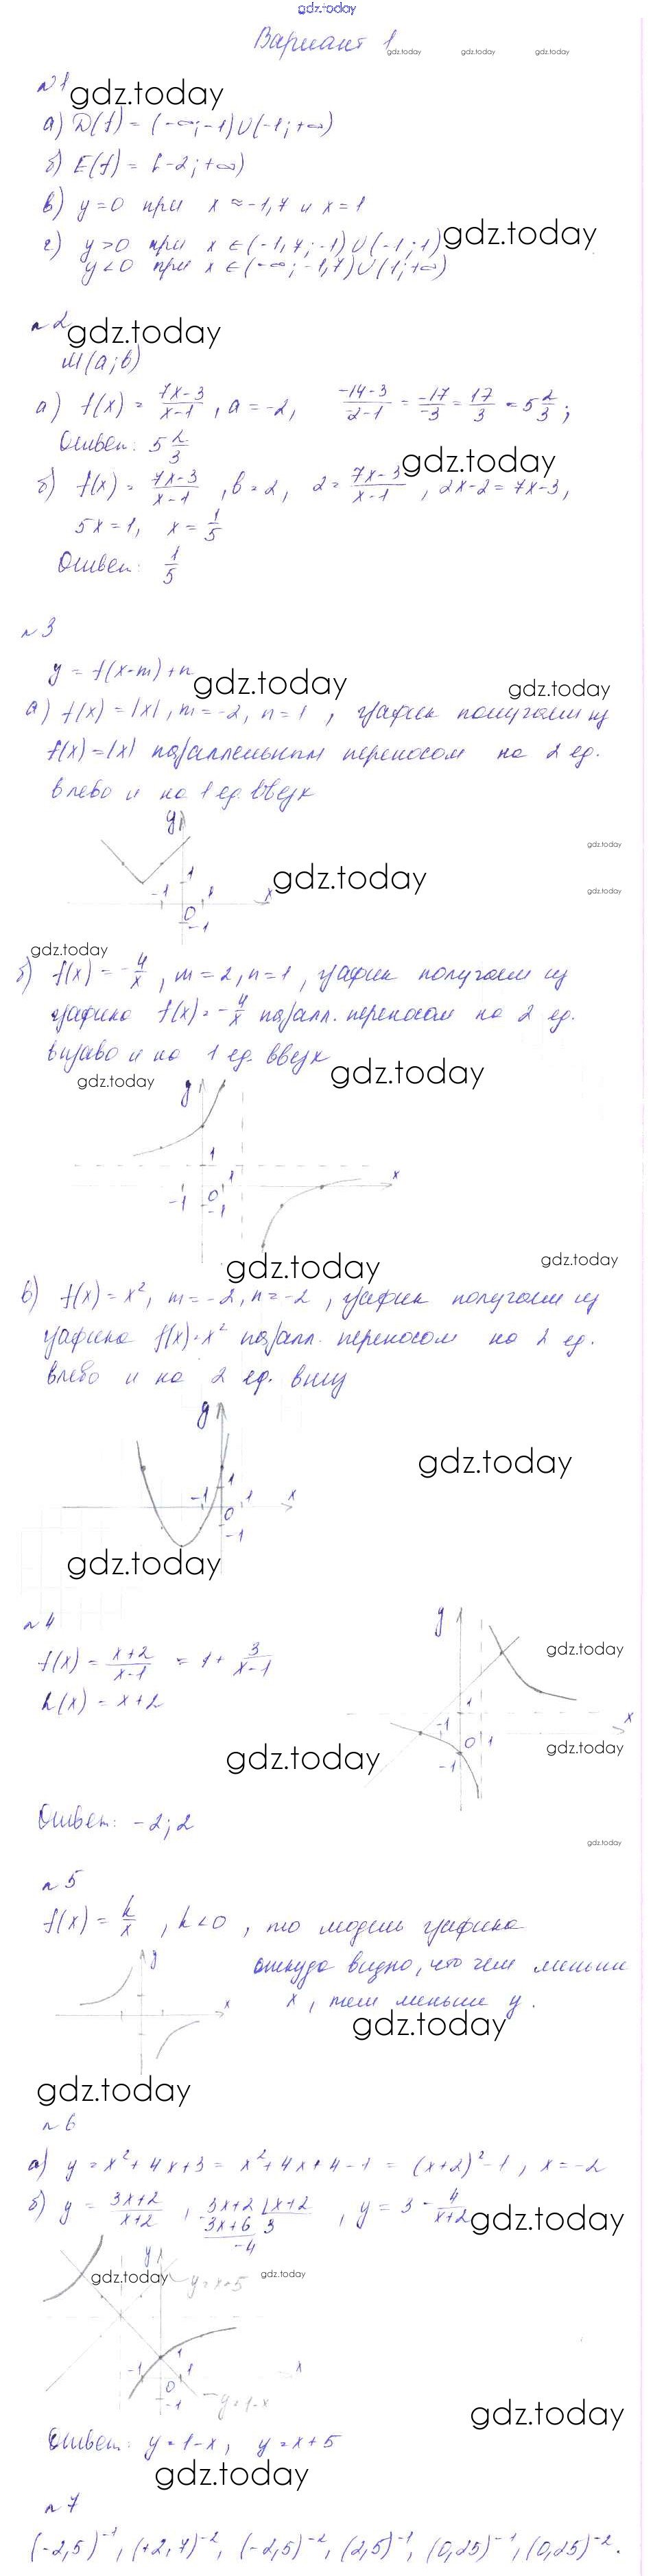 gdz.today
Вариант 1
gdz.today gdz.today gdz.today
№1 gdz.today
а) D(f) = (-∞; -1)∪(-1; +∞)
б) E(f) = [-2; +∞)
в) y=0 при x ≈ -1,7 и x = 1
г) y>0 при x ∈ (-1,7; -1)∪(-1; 1) gdz.today
y<0 при x ∈ (-∞; -1,7)∪(1; +∞)
№2 gdz.today
M(a; b)
а) f(x) = (7x-3)/(x-1), a = -2, (-14-3)/(2-1) = -17/-3 = 17/3 = 5 2/3;
Ответ: 5 2/3
б) f(x) = (7x-3)/(x-1), b = 2, 2 = (7x-3)/(x-1), 2x-2 = 7x-3, gdz.today
5x = 1, x = 1/5
Ответ: 1/5
№3
y = f(x-m)+n gdz.today gdz.today
а) f(x) = |x|, m = -2, n = 1, график получаем из
f(x) = |x| параллельным переносом на 2 ед.
влево и на 1 ед. вверх
y
gdz.today
1
-1 1 x gdz.today
gdz.today
0
-1
gdz.today
б) f(x) = -4/x, m = 2, n = 1, график получаем из
графика f(x) = -4/x паралл. переносом на 2 ед.
вправо и на 1 ед. вверх
gdz.today gdz.today
y
1
-1 0 1 x
-1
gdz.today gdz.today
в) f(x) = x², m = -2, n = -2, график получаем из
графика f(x) = x² паралл. переносом на 2 ед.
влево и на 2 ед. вниз
y
gdz.today
1
-1 0 1 x
-1
gdz.today
№4
y
f(x) = (x+2)/(x-1) = 1 + 3/(x-1) gdz.today
h(x) = x+2
1
-1 0 1 x
-1
gdz.today gdz.today
Ответ: -2; 2
gdz.today
№5
f(x) = k/x, k<0, то модель графика
y
откуда видно, что чем меньше
x
x, тем меньше y.
gdz.today
gdz.today
№6
а) y = x²+4x+3 = x²+4x+4-1 = (x+2)²-1, x = -2
б) y = (3x+2)/(x+2), 3x+2 | x+2, y = 3 - 4/(x+2) gdz.today
3x+6 3
-4
y
gdz.today y = x+5 gdz.today
1
-1 0 1 x
-1
y = 1-x
gdz.today
Ответ: y = 1-x, y = x+5
gdz.today
№7
(-2,5)⁻¹, (+2,7)⁻², (-2,5)⁻², (2,5)⁻¹, (0,25)⁻¹, (0,25)⁻².